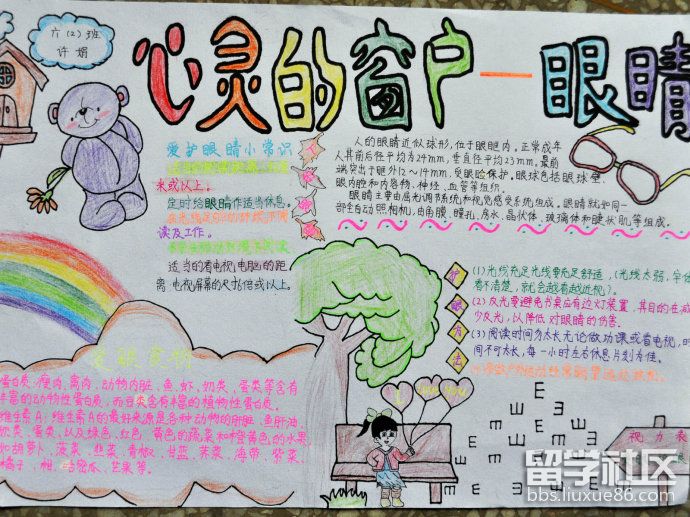 六(2)班
许娟
心灵的窗户—眼睛
爱护眼睛小常识
米或以上。
定时给眼睛作适当休息。
读及工作。
适当的看电视,电脑的距
离,电视屏幕的尺寸倍或以上。
人的眼睛近似球形,位于眼眶内。正常成年
人其前后径平均为24mm,垂直径平均23mm。最前
端突出于眶外12~14mm,受眼睑保护。眼球包括眼球壁、
眼内腔和内容物、神经、血管等组织。
眼睛主要由屈光调节系统和视觉感受系统组成。眼睛就如同一
部全自动照相机,由角膜、瞳孔、房水、晶状体、玻璃体和睫状肌等组成。
护眼方法
(1)光线充足光线要充足舒适,(光线太弱,字体
看不清楚,就会越看越近视)。
(2)反光要避免书桌应有边灯装置,其目的在减
少反光,以降低对眼睛的伤害。
(3)阅读时间勿太长无论做功课或看电视,时
间不可太长,每一小时左右休息片刻为佳。
蛋白质:瘦肉、禽肉、动物内脏、鱼、虾、奶类、蛋类等含有
丰富的动物性蛋白质,而豆类含有丰富的植物性蛋白质。
维生素A:维生素A的最好来源是各种动物的肝脏、鱼肝油
奶类、蛋类,以及绿色、红色、黄色的蔬菜和橙黄色的水果
如胡萝卜、菠菜、韭菜、青椒、甘蓝、荠菜、海带、紫菜、
橘子、柑、哈密瓜、芒果等。
I Love You
视力表
留学社区
bbs.liuxue86.com